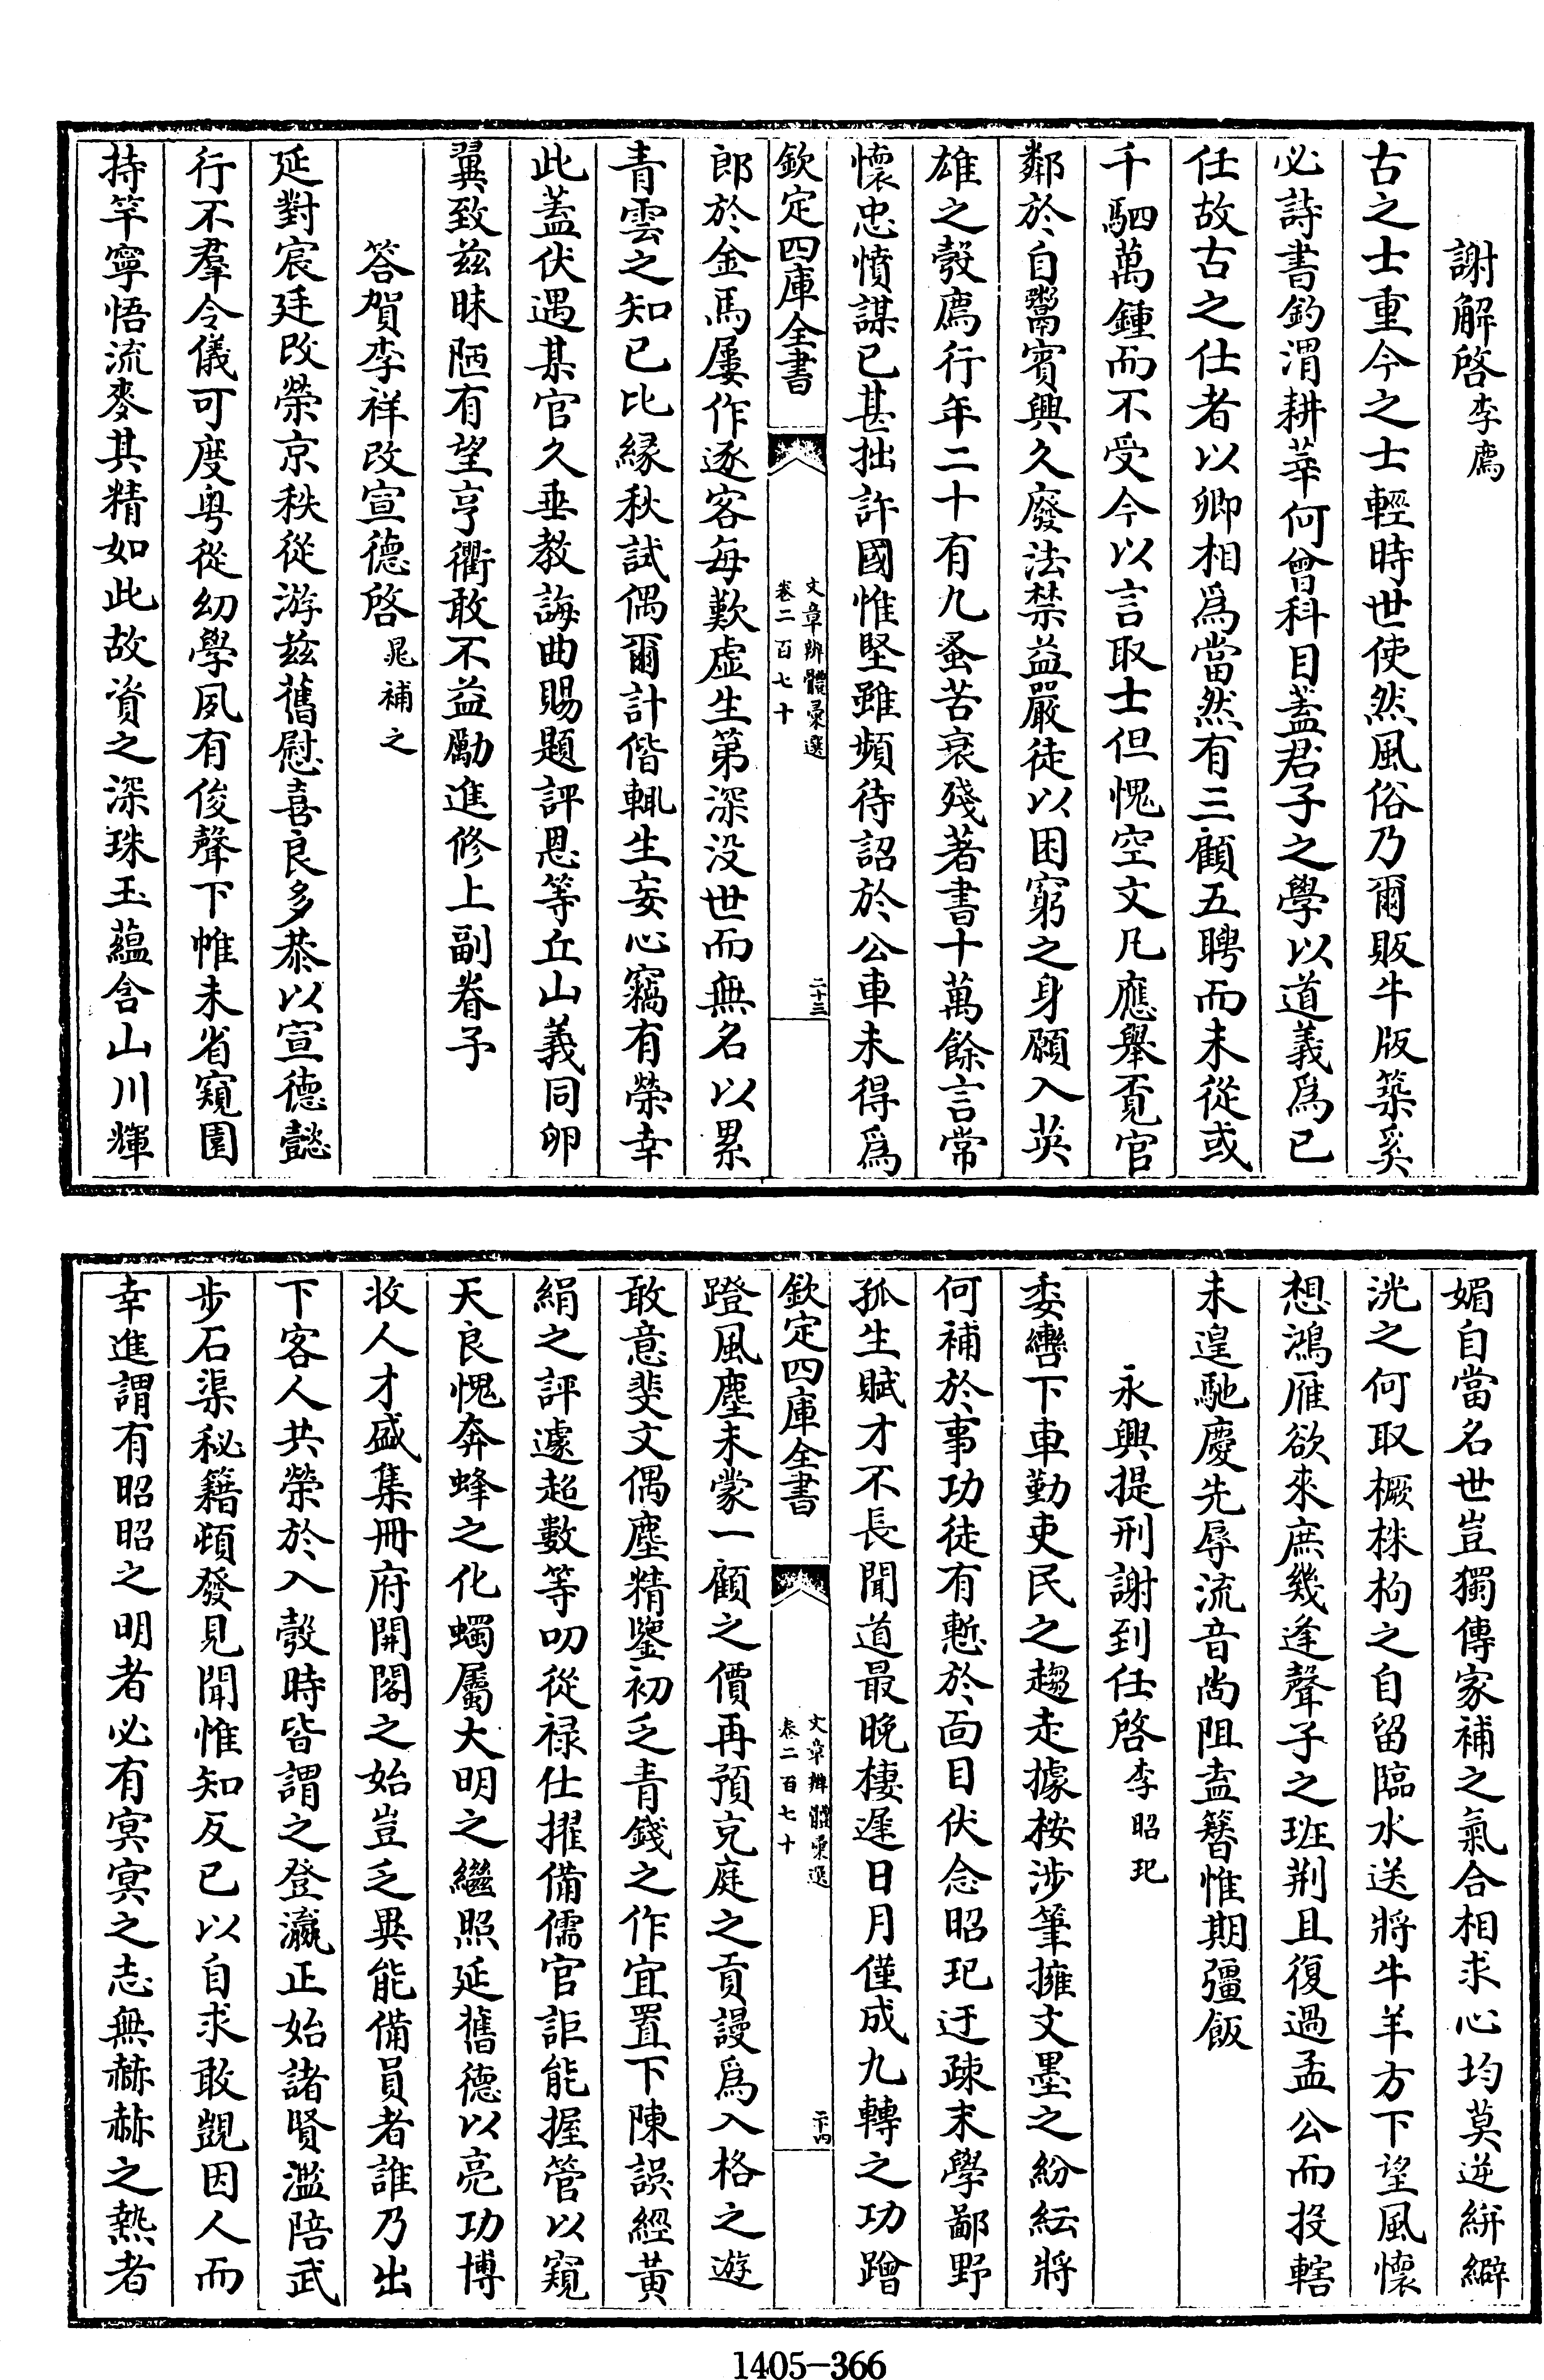 謝解啓李廌
古之士重今之士輕時世使然風俗乃爾販牛版築奚
必詩書釣渭耕莘何曾科目蓋君子之學以道義爲已
任故古之仕者以卿相爲當然有三顧五聘而未從或
千駟萬鍾而不受今以言取士但愧空文凡應舉覔官
鄰於自鬻賓興久廢法禁益嚴徒以困窮之身願入英
雄之彀廌行年二十有九蚤苦衰殘著書十萬餘言常
懷忠憤謀已甚拙許國惟堅雖頻待詔於公車未得爲
欽定四庫全書
文章辨體彚選
卷二百七十
二十三
郎於金馬屢作逐客每歎虚生第深没世而無名以累
青雲之知已比縁秋試偶爾計偕輒生妄心竊有榮幸
此蓋伏遇某官久垂教誨曲賜題評恩等丘山義同卵
翼致兹昧陋有望亨衢敢不益勵進修上副眷予
答賀李祥改宣德啓晁補之
延對宸廷改榮京秩從游兹舊慰喜良多恭以宣德懿
行不羣令儀可度粤從幼學夙有俊聲下帷未省窺園
持竿寧悟流麥其精如此故資之深珠玉蘊含山川輝
媚自當名世豈獨傳家補之氣合相求心均莫逆絣繲
洸之何取橛株枸之自留臨水送將牛羊方下望風懷
想鴻雁欲來庶幾逢聲子之班荆且復過孟公而投轄
未遑馳慶先辱流音尚阻盍簪惟期彊飯
永興提刑謝到任啓李昭玘
委轡下車勤吏民之趨走據桉涉筆擁文墨之紛紜將
何補於事功徒有慙於面目伏念昭玘迂疎末學鄙野
孤生賦才不長聞道最晚棲遲日月僅成九轉之功蹭
欽定四庫全書
文章辨體彚選
卷二百七十
二十四
蹬風塵未蒙一顧之價再預充庭之貢謾爲入格之遊
敢意斐文偶塵精鑒初乏青錢之作宜置下陳誤經黄
絹之評遽超數等叨從禄仕擢備儒官詎能握管以窺
天良愧奔蜂之化蠋屬大明之繼照延舊德以亮功博
收人才盛集冊府開閣之始豈乏異能備員者誰乃出
下客人共榮於入彀時皆謂之登瀛正始諸賢濫陪武
步石渠秘籍頻發見聞惟知反已以自求敢覬因人而
幸進謂有昭昭之明者必有冥冥之志無赫赫之熱者
1405-366